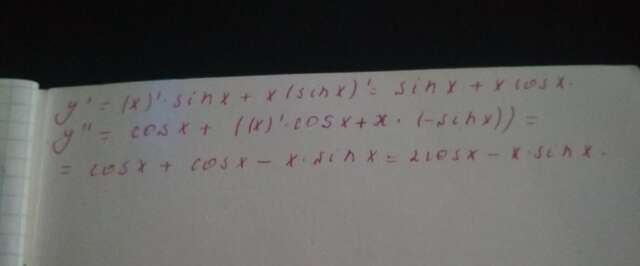 y' = (x)'·sinx + x(sinx)' = sinx + x cosx.
y'' = cosx + ((x)'·cosx + x·(-sinx)) =
= cosx + cosx - x·sinx = 2cosx - x·sinx.